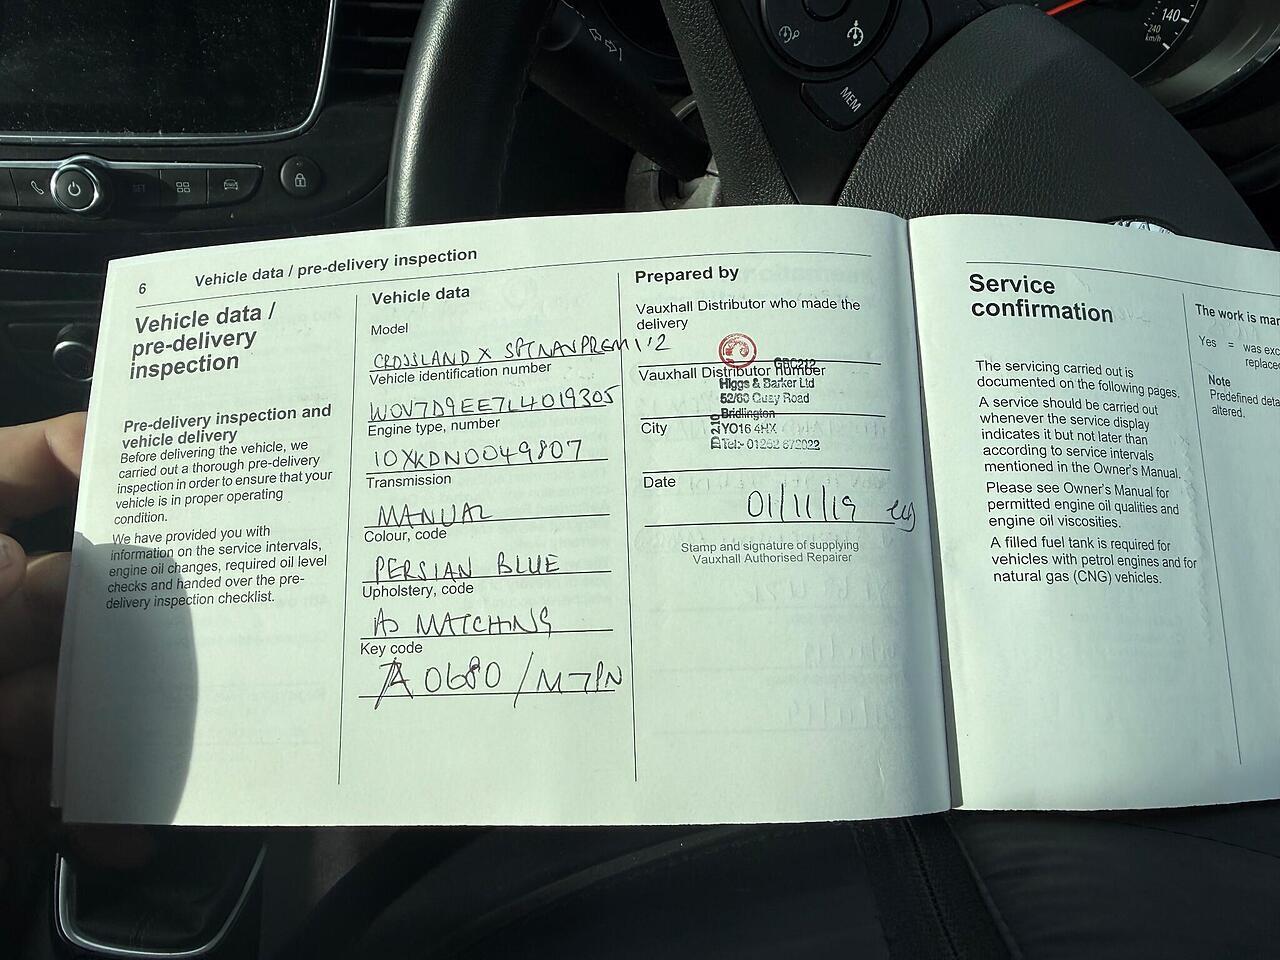 140
240
km/h
MEM
SET
6 Vehicle data / pre-delivery inspection
Vehicle data /
pre-delivery
inspection
Pre-delivery inspection and
vehicle delivery
Before delivering the vehicle, we
carried out a thorough pre-delivery
inspection in order to ensure that your
vehicle is in proper operating
condition.
We have provided you with
information on the service intervals,
engine oil changes, required oil level
checks and handed over the pre-
delivery inspection checklist.
Vehicle data
Model
CROSSLAND X SPTNAVPREM 1'2
Vehicle identification number
W0V7D9EE7L4019305
Engine type, number
10XKDN0049807
Transmission
MANUAL
Colour, code
PERSIAN BLUE
Upholstery, code
AS MATCHING
Key code
A0680 / M7PN
Prepared by
Vauxhall Distributor who made the
delivery
Vauxhall Distributor number
Higgs & Barker Ltd
52/60 Quay Road
Bridlington
City
YO16 4HX
Tel:- 01262 672022
Date
01/11/19
Stamp and signature of supplying
Vauxhall Authorised Repairer
Service
confirmation
The servicing carried out is
documented on the following pages.
A service should be carried out
whenever the service display
indicates it but not later than
according to service intervals
mentioned in the Owner's Manual.
Please see Owner's Manual for
permitted engine oil qualities and
engine oil viscosities.
A filled fuel tank is required for
vehicles with petrol engines and for
natural gas (CNG) vehicles.
The work is mar
Yes = was exc
replace
Note
Predefined deta
altered.